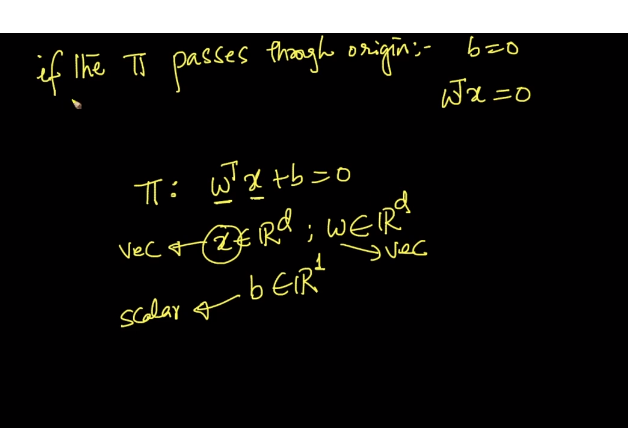 if the π passes through origin:- b=0
wᵀx=0
π: wᵀx+b=0
vec ← x∈ℝᵈ ; w∈ℝᵈ
→ vec
b∈ℝ¹
scalar ←